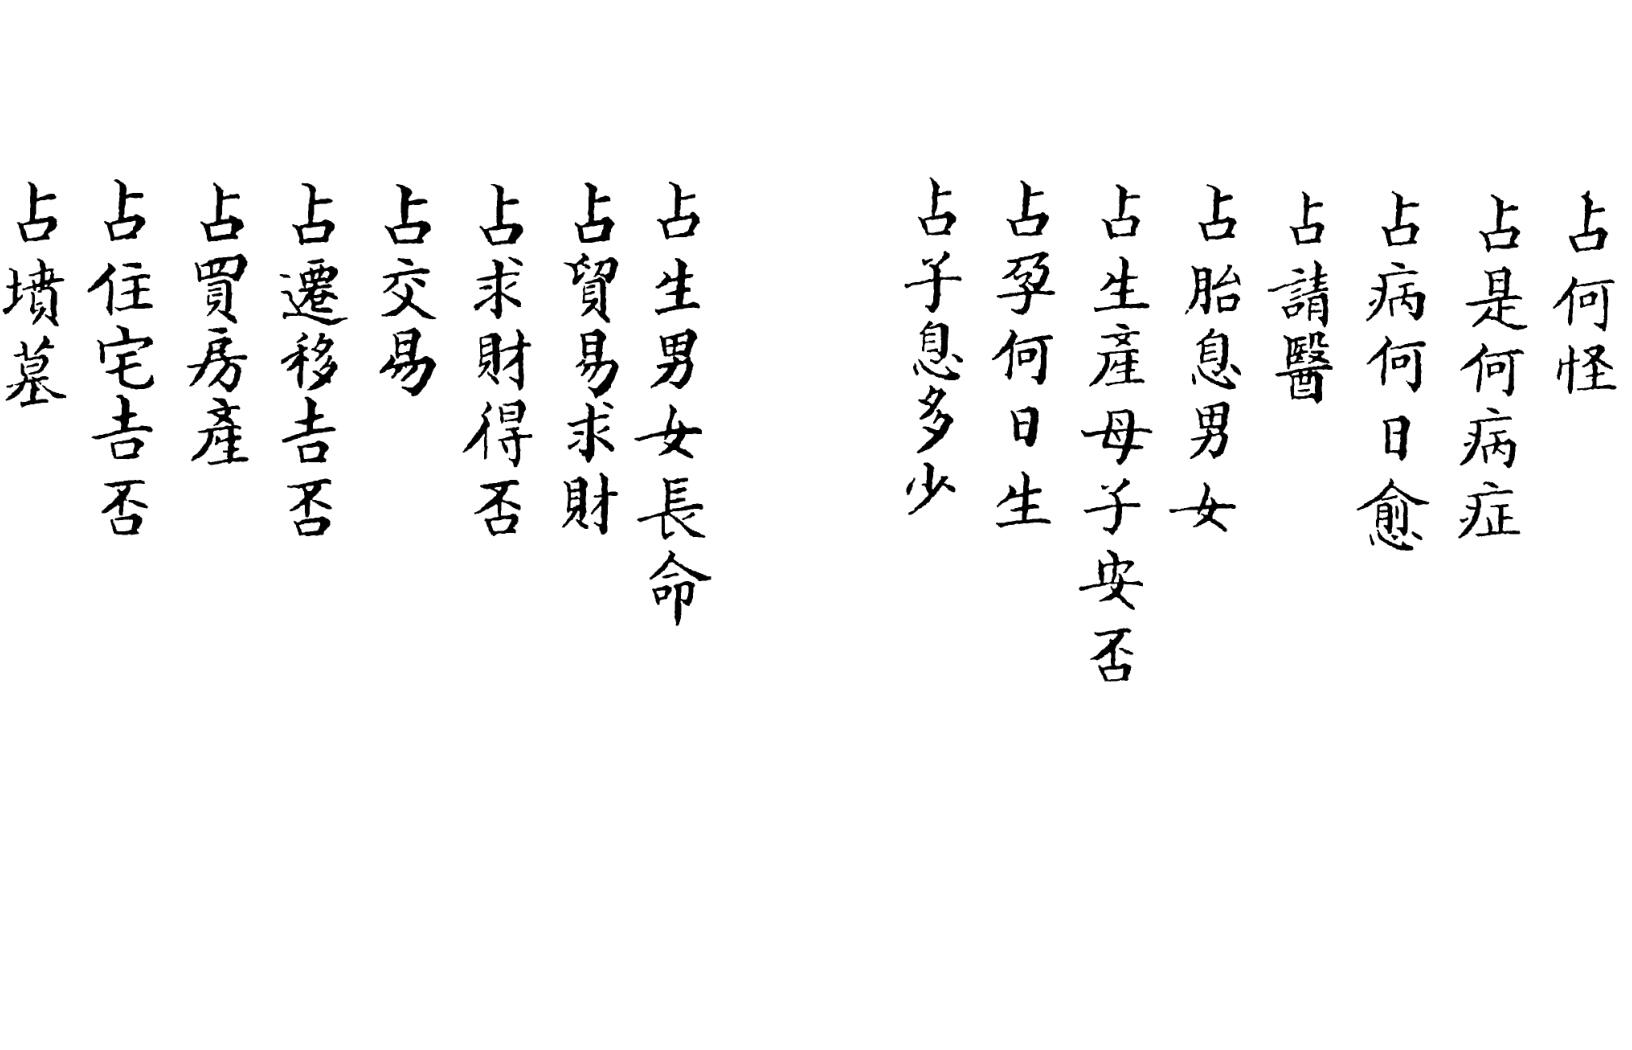 占何怪
占是何病症
占病何日愈
占請醫
占胎息男女
占生產母子安否
占孕何日生
占子息多少
占生男女長命
占貿易求財
占求財得否
占交易
占遷移吉否
占買房產
占住宅吉否
占墳墓